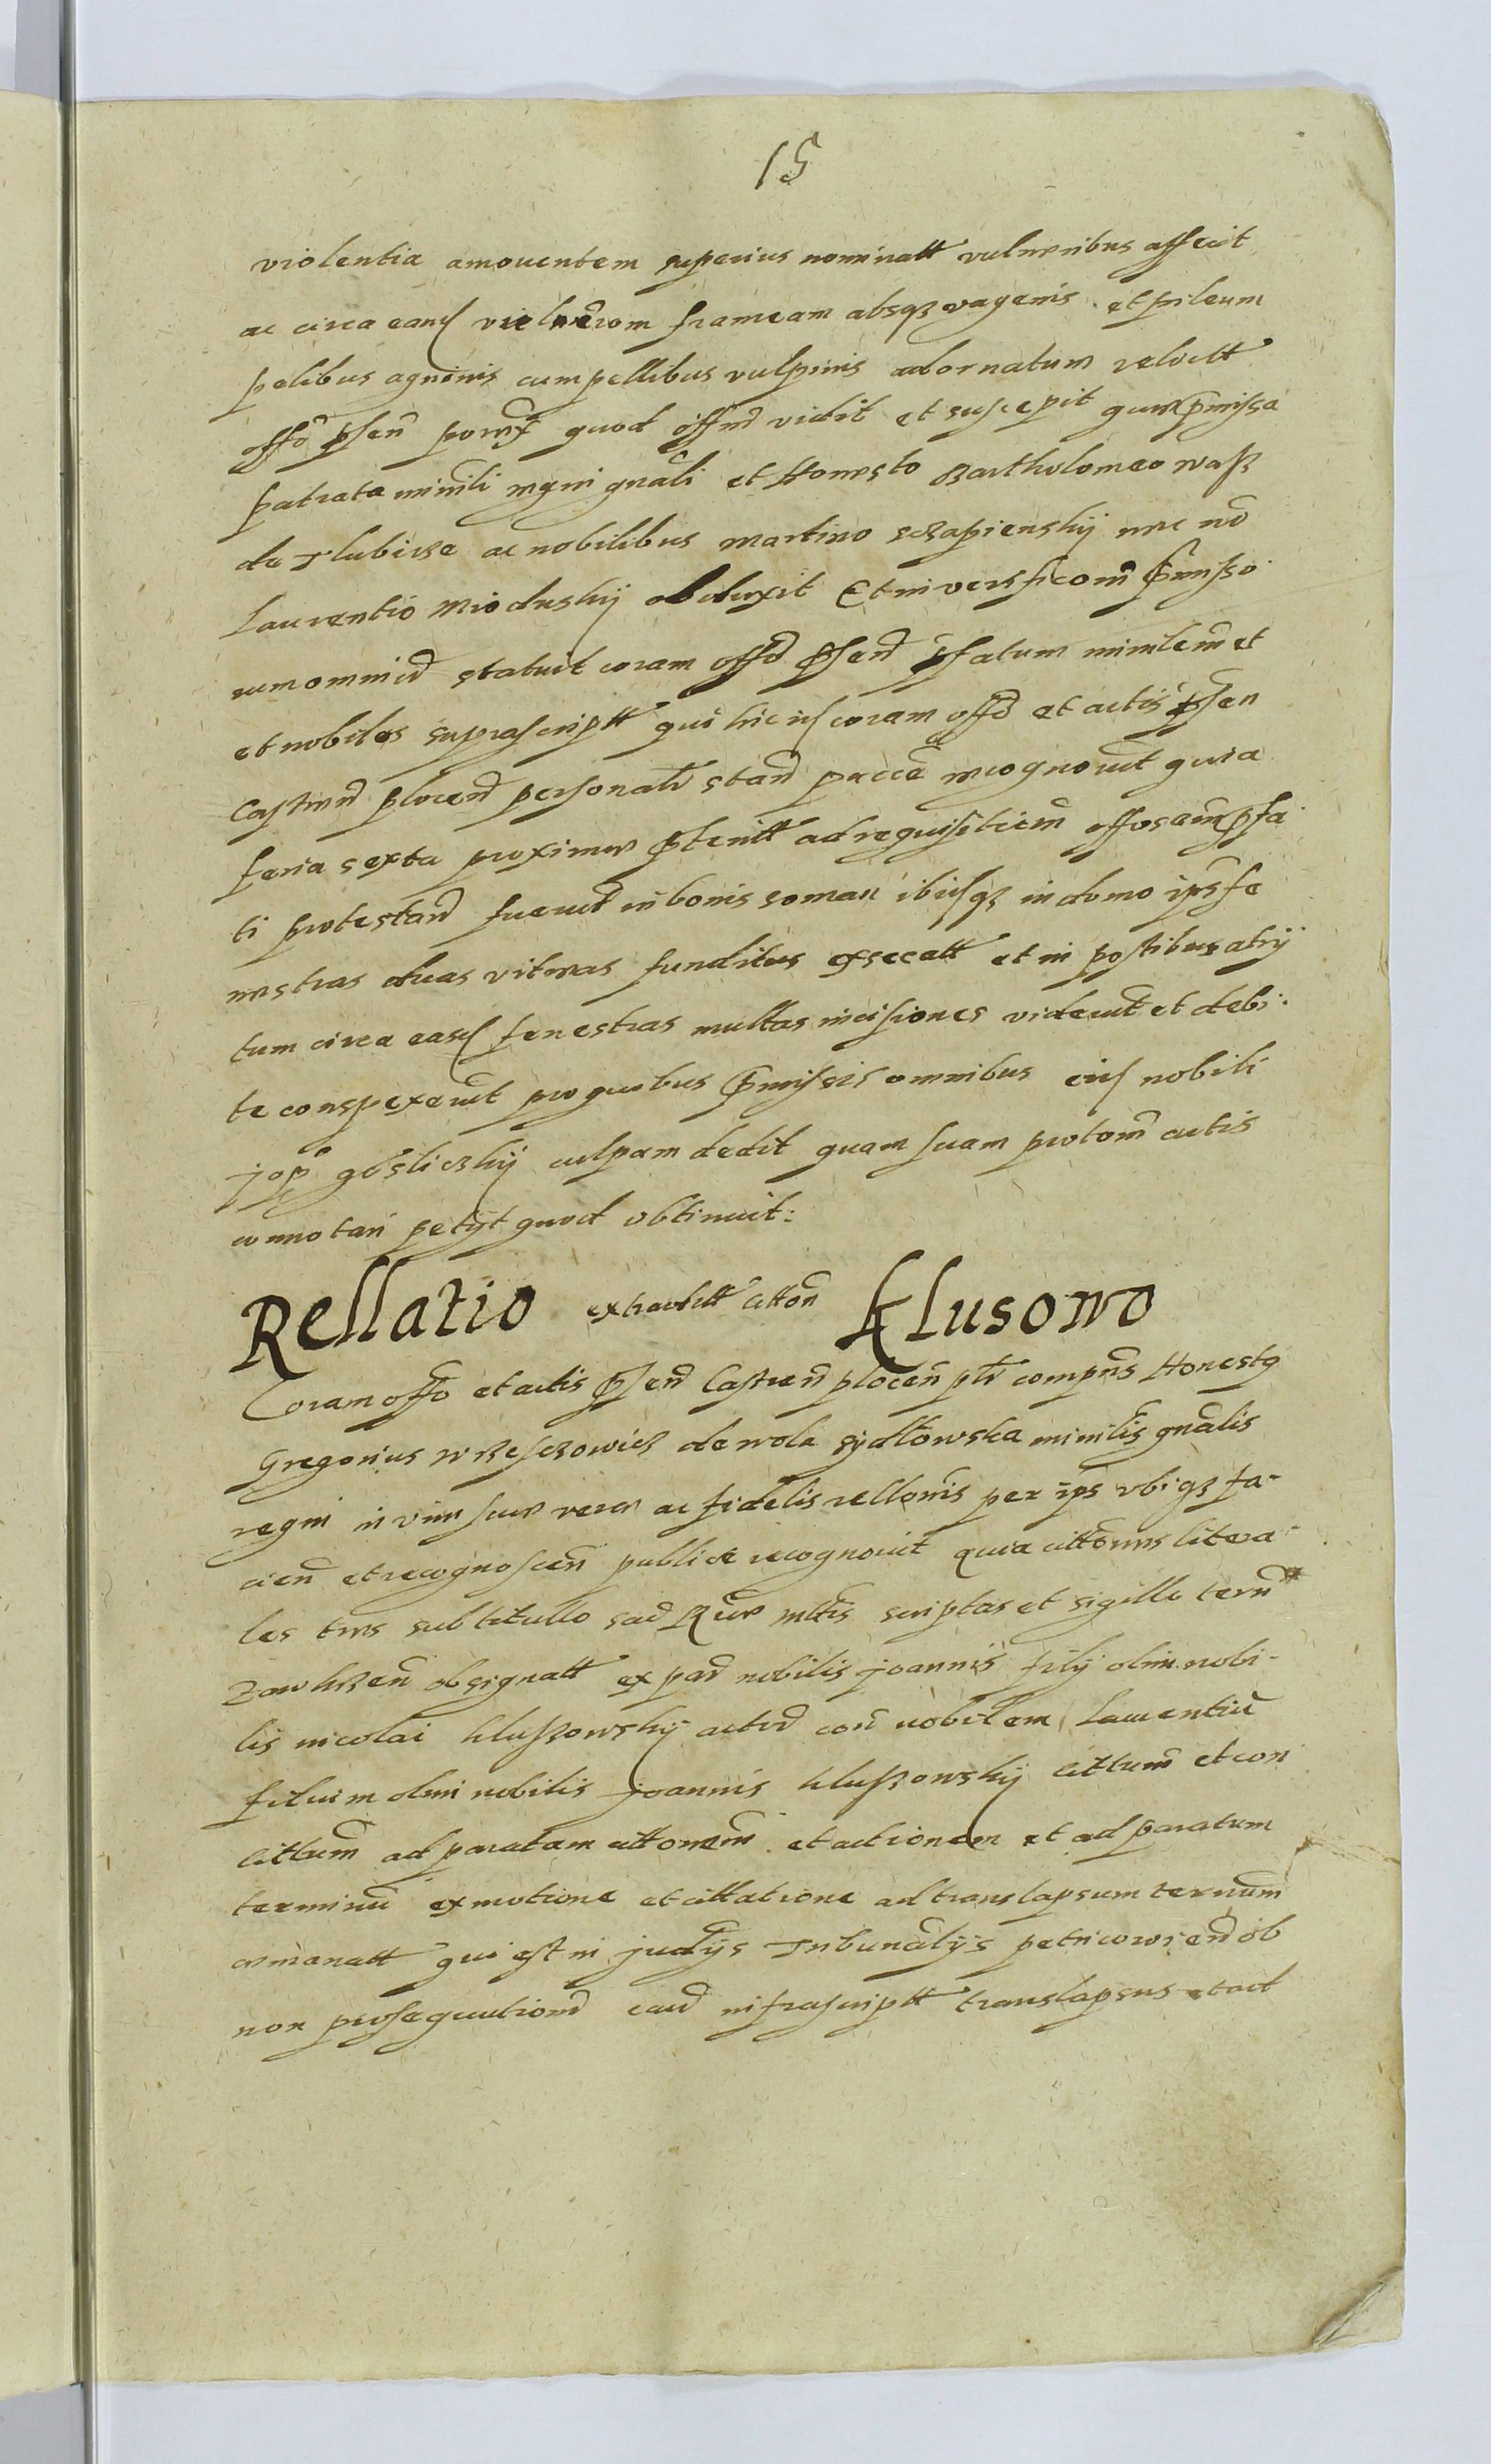 15
violentia amouentem superius nominatt vulneribus affecit
ac circa eand violentiam frameam absqз vagenis et pileum
pelibus agninis cum pellibus vulpinis adornatum relictt
offo psen quod offm vidit et suscepit quae pmissa
patrata minrli regni gnali et Honesto Bartholomeo
de Tlubicze ac nobilibus Martino nec no
Laurentio Mioduskij obduxit Et in verificaom pmisso
rum ominu statuit coram offo psen pfatum minrlem et
et nobiles suprascriptt qui hic id coram offo et actis psen
Castren plocen personalr stan recognouit quia
feria sexta proxime pteritt ad requisitiem pfa
ti protestan fuerut in bonis soman ibidqз in domo ips fe
nestras duas vitreas funditus exsecatt et in postibus atrij
tum circa easd fenestras multas incisiones viderut et debi
te conspexerut pro quibus pmissis omnibus eid nobili
gosliczkij culpam dedit quam suam protom actis
connotari petijt quod obtinuit:
Rellatio extraditt citton Klusowo
Coram offo et actis psen Castren plocen plr compns Honestg
Gregorius de wola sydlowska minrlis gnalis
regni in vim sue vere ac fidelis rellonis per ips vbiqз fa-
cien et recognoscen publice recognouit quia cittones litera
les tres sub titullo sac R mtis scriptas et sigillo tern
Zawkrzen obsignatt ex par nobilis joannis filij olim nobi-
lis nicolai klussowskij actor con nobilem Laurentiu
filium olim nobilis joannis klussowskij cittum et con
cittum ad paratam cittonem et actionem et ad paratum
terminu ex motione et cittatione ad translapsum ternum
emanatt qui est in judijs Tribunalijs petricowien ob
non prosequutiom eard infrascriptt translapsus et ad